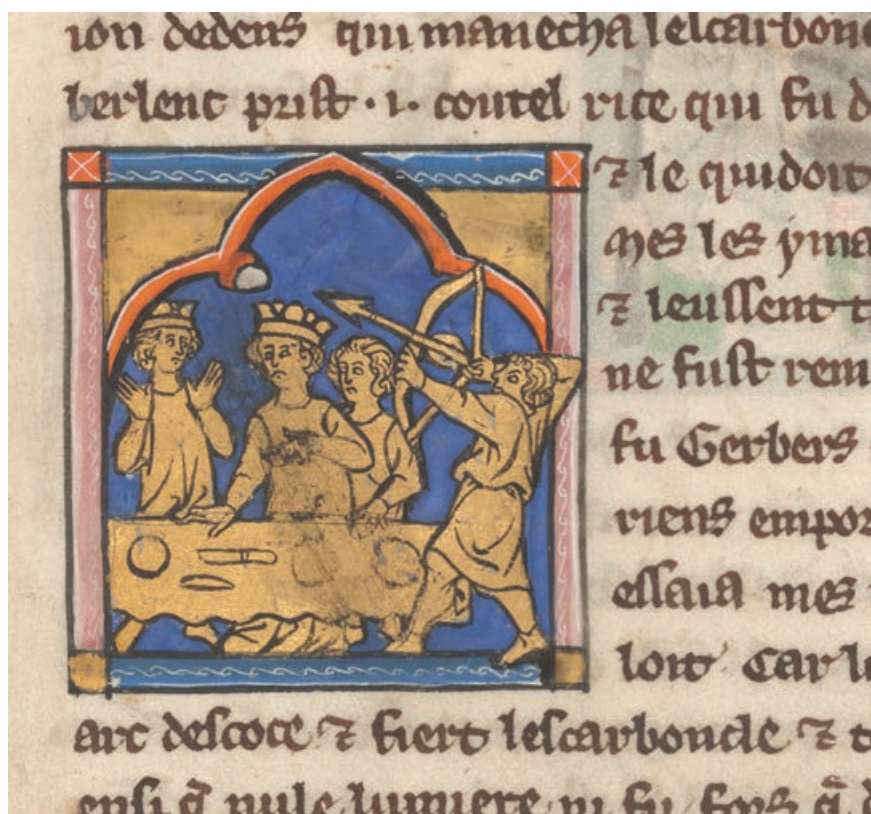 ion dedens qui manecha lescarbonc
berlent prist · i · coutel rice qui fu d
⁊ le quidoit
mes les yma
⁊ leussent t
ne fust rem
fu Gerbers
riens empor
essaia mes
loit Car le
arc descoce ⁊ fiert lescarboucle ⁊ t
ensi q̄ nule lumiere ni fu fors q̄ d